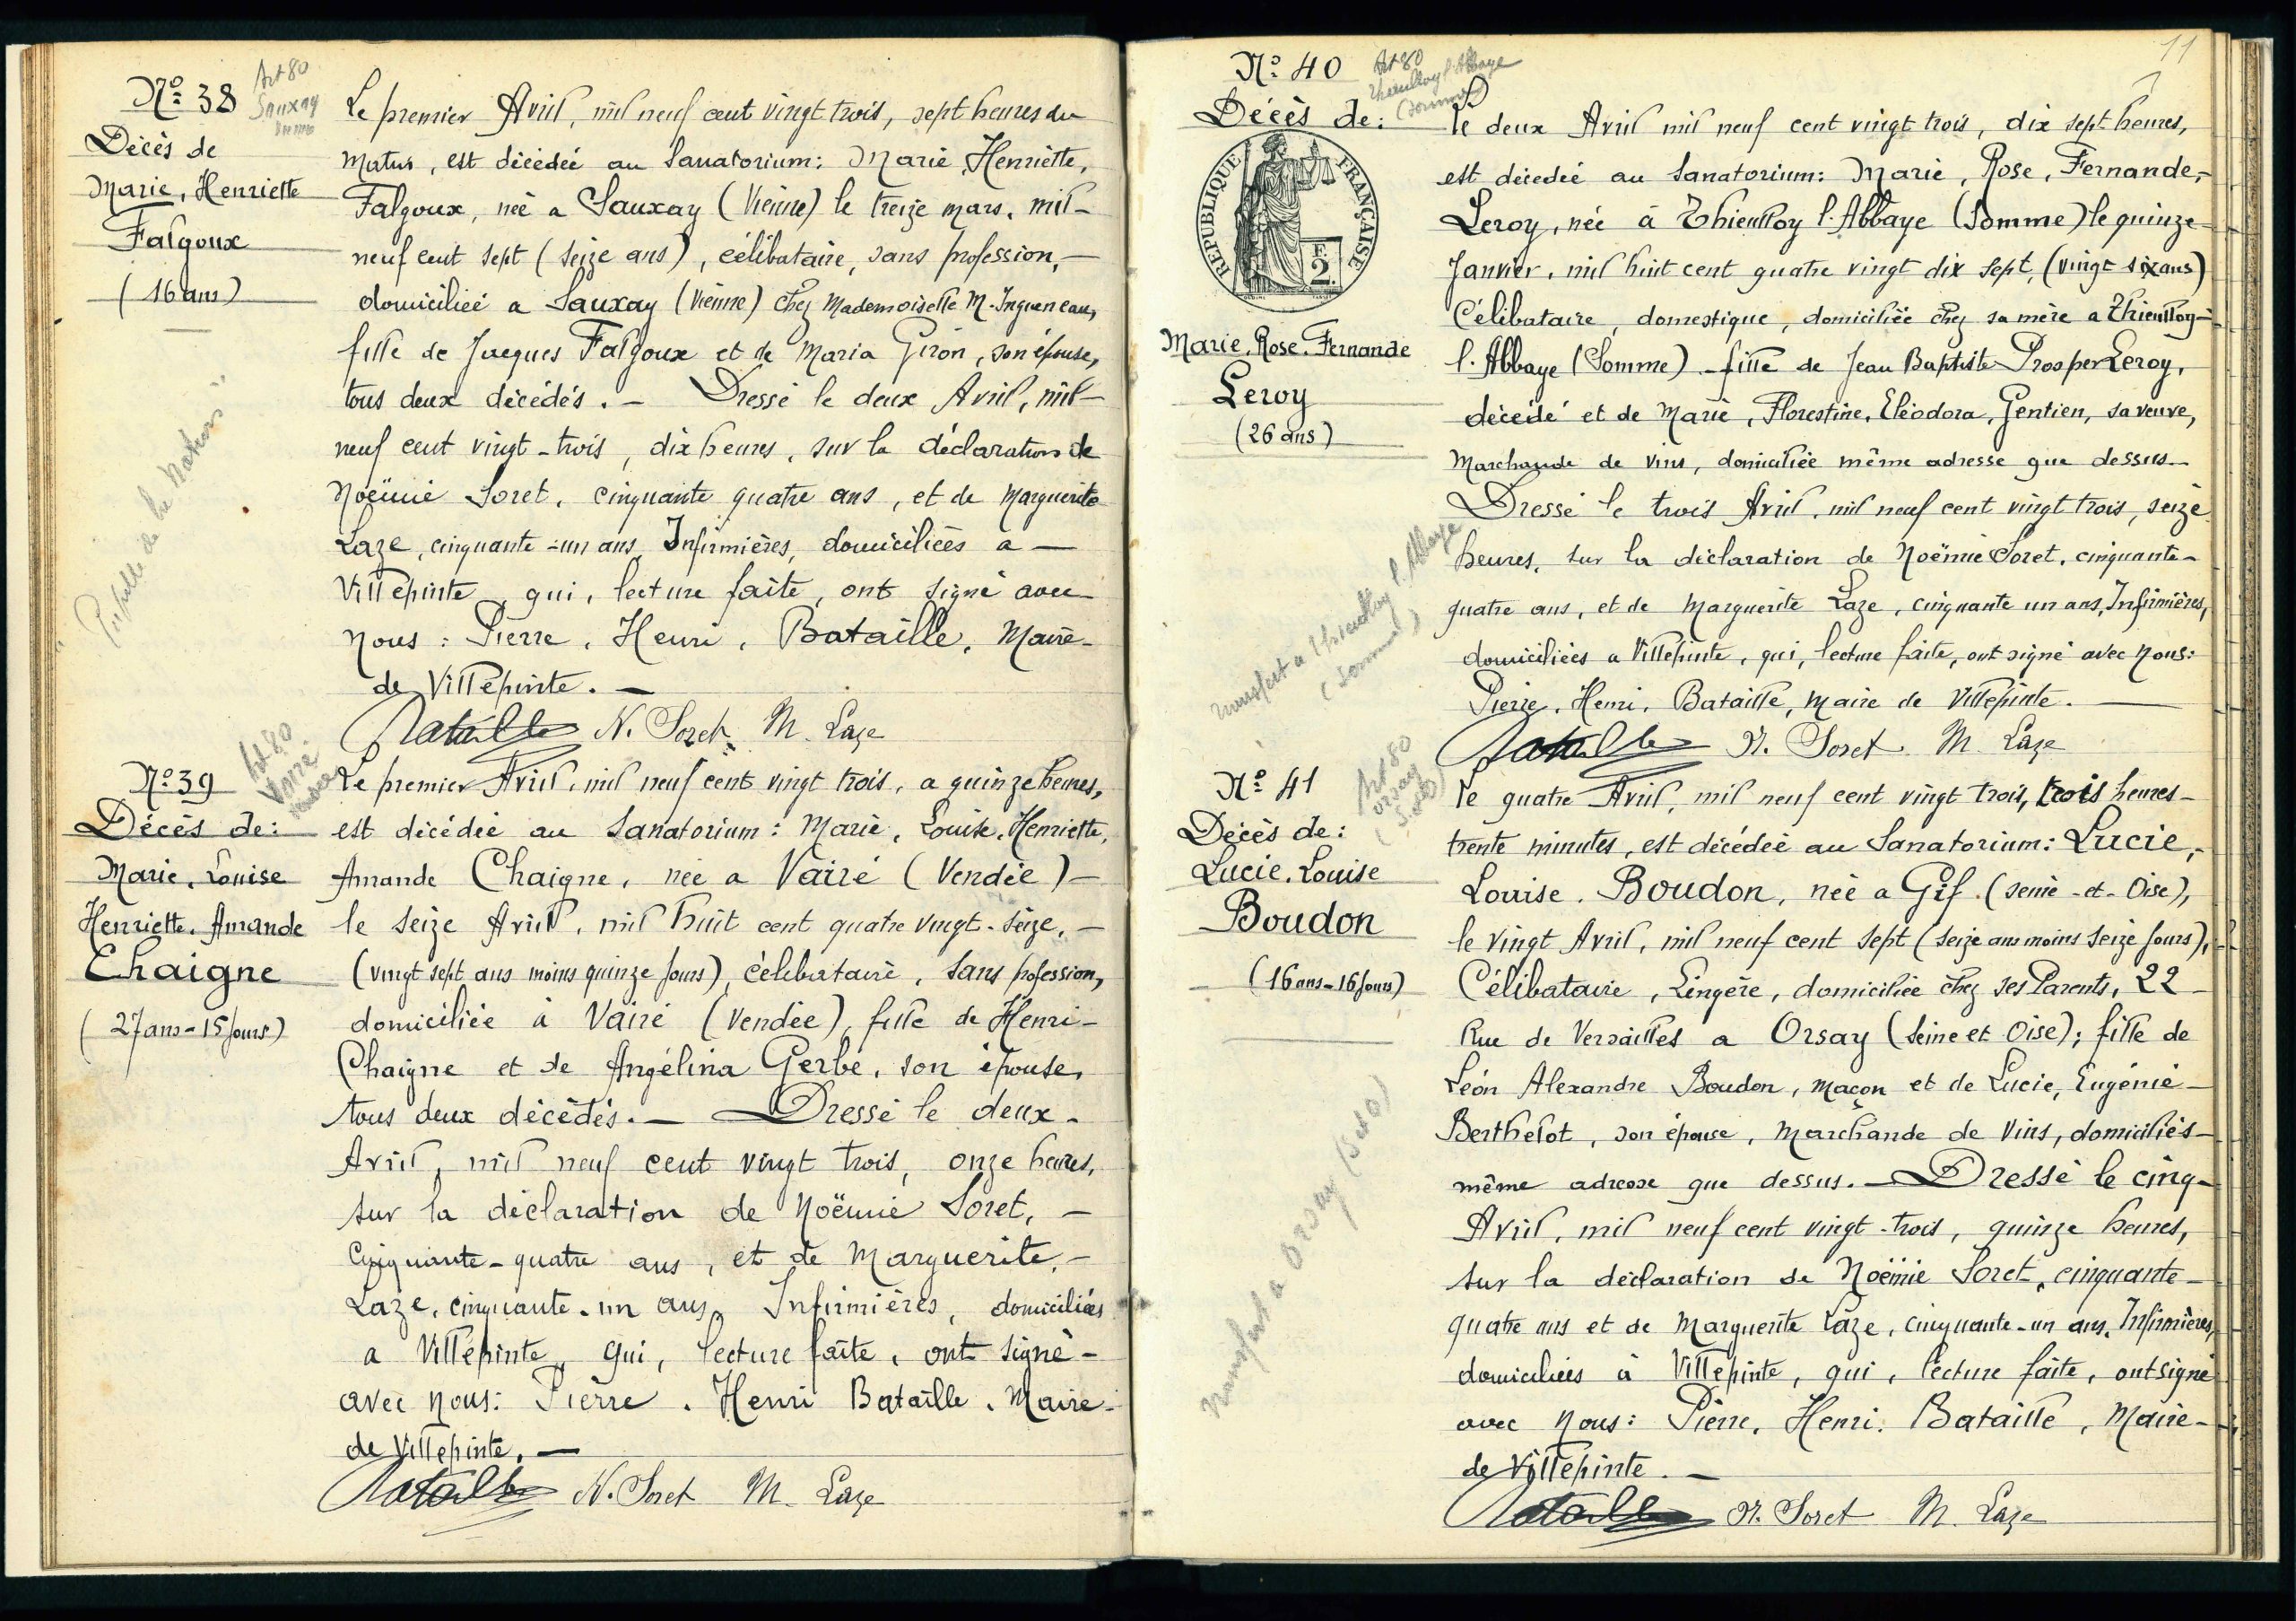 Nº 38
Art 80
Sauxay
Vienne
Décès de
Marie, Henriette
Falgoux
(16 ans)
Pupille de la Nation
Le premier Avril, mil neuf cent vingt trois, sept heures du
matin, est décédée au Sanatorium: Marie, Henriette,
Falgoux, née a Sauxay (Vienne) le treize mars, mil-
neuf cent sept (seize ans), célibataire, sans profession, —
domiciliée a Sauxay (Vienne) chez Mademoiselle M. Ingueneau,
fille de Jacques Falgoux et de Maria Giron, son épouse,
tous deux décédés. — Dressé le deux Avril, mil-
neuf cent vingt-trois, dix heures, sur la déclaration de
Noëmie Soret, cinquante quatre ans, et de Marguerite
Laze, cinquante-un ans, Infirmières, domiciliées a —
Villepinte, qui, lecture faite, ont signé avec
nous: Pierre, Henri, Bataille, Maire-
de Villepinte. —
Bataille N. Soret M. Laze
Nº 39
Art 80
Vairé
Vendée
Décès de:
Marie, Louise
Henriette, Amande
Chaigne
(27 ans - 15 jours)
Le premier Avril, mil neuf cent vingt trois, a quinze heures,
est décédée au Sanatorium: Marie, Louise, Henriette,
Amande Chaigne, née a Vairé (Vendée) —
le seize Avril, mil huit cent quatre vingt-seize, —
(vingt sept ans moins quinze jours), célibataire, sans profession,
domiciliée à Vairé (Vendée), fille de Henri-
Chaigne et de Angélina Gerbé, son épouse,
tous deux décédés. — Dressé le deux-
Avril, mil neuf cent vingt trois, onze heures,
sur la déclaration de Noëmie Soret, —
Cinquante-quatre ans, et de Marguerite, —
Laze, cinquante-un ans, Infirmières, domiciliées
a Villepinte, qui, lecture faite, ont signé -
avec nous: Pierre, Henri Bataille, Maire-
de Villepinte. —
Bataille N. Soret M. Laze
11
Nº 40
Art 80
Thieulloy l'Abbaye
(Somme)
Décès de:
RÉPUBLIQUE FRANÇAISE
2 F.
Marie, Rose, Fernande
Leroy
(26 ans)
Transfert a Thieulloy l'Abbaye
(Somme)
Le deux Avril mil neuf cent vingt trois, dix sept heures,
est décedée au Sanatorium: Marie, Rose, Fernande,-
Leroy, née à Thieulloy l'Abbaye (Somme) le quinze
Janvier, mil huit cent quatre vingt dix sept, (vingt six ans)
Célibataire, domestique, domiciliée chez sa mère a Thieulloy-
l'Abbaye (Somme) - fille de Jean Baptiste Prosper Leroy,
décédé et de Marie, Florestine, Eléodora, Gentien, sa veuve,
Marchande de vins, domiciliée même adresse que dessus —
Dressé le trois Avril, mil neuf cent vingt trois, seize
heures, sur la déclaration de Noëmie Soret, cinquante-
quatre ans, et de Marguerite Laze, cinquante un ans, Infirmières,
domiciliées a Villepinte, qui, lecture faite, ont signé avec nous:
Pierre, Henri, Bataille, Maire de Villepinte. —
Bataille N. Soret M. Laze
Nº 41
Art 80
Orsay
(S et O)
Décès de:
Lucie, Louise
Boudon
(16 ans - 16 jours)
Transfert a Orsay (S et O)
Le quatre Avril, mil neuf cent vingt trois, trois heures-
trente minutes, est décédée au Sanatorium: Lucie,-
Louise, Boudon, née a Gif. (Seine-et-Oise),
le vingt Avril, mil neuf cent sept (seize ans moins seize jours),
Célibataire, Lingère, domiciliée chez ses Parents, 22 -
Rue de Versailles a Orsay (Seine et Oise); fille de
Léon Alexandre Boudon, maçon et de Lucie, Eugénie -
Berthelot, son épouse, Marchande de Vins, domiciliés -
même adresse que dessus. — Dressé le cinq-
Avril, mil neuf cent vingt-trois, quinze heures,
sur la déclaration de Noëmie Soret, cinquante-
quatre ans et de Marguerite Laze, cinquante-un ans, Infirmières,
domiciliées à Villepinte, qui, lecture faite, ont signé
avec nous: Pierre, Henri, Bataille, Maire-
de Villepinte. —
Bataille N. Soret M. Laze